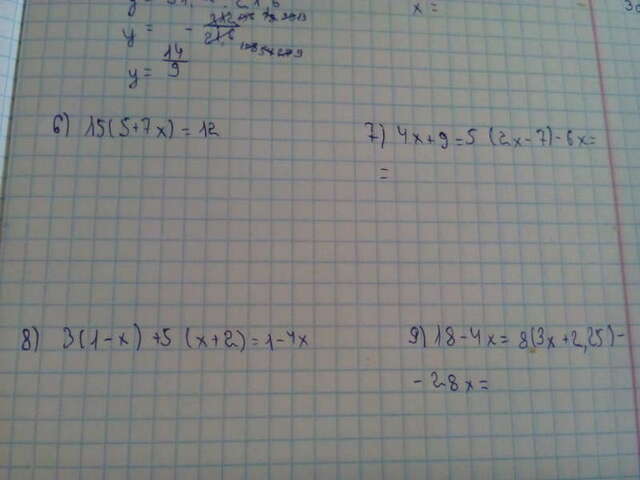 x =
y =
y = 14/9
6) 15(5+7x) = 12
7) 4x+9=5 (2x-7)-6x=
=
8) 3(1-x) +5 (x+2)=1-4x
9) 18-4x= 8(3x+2,25)-
-28x=